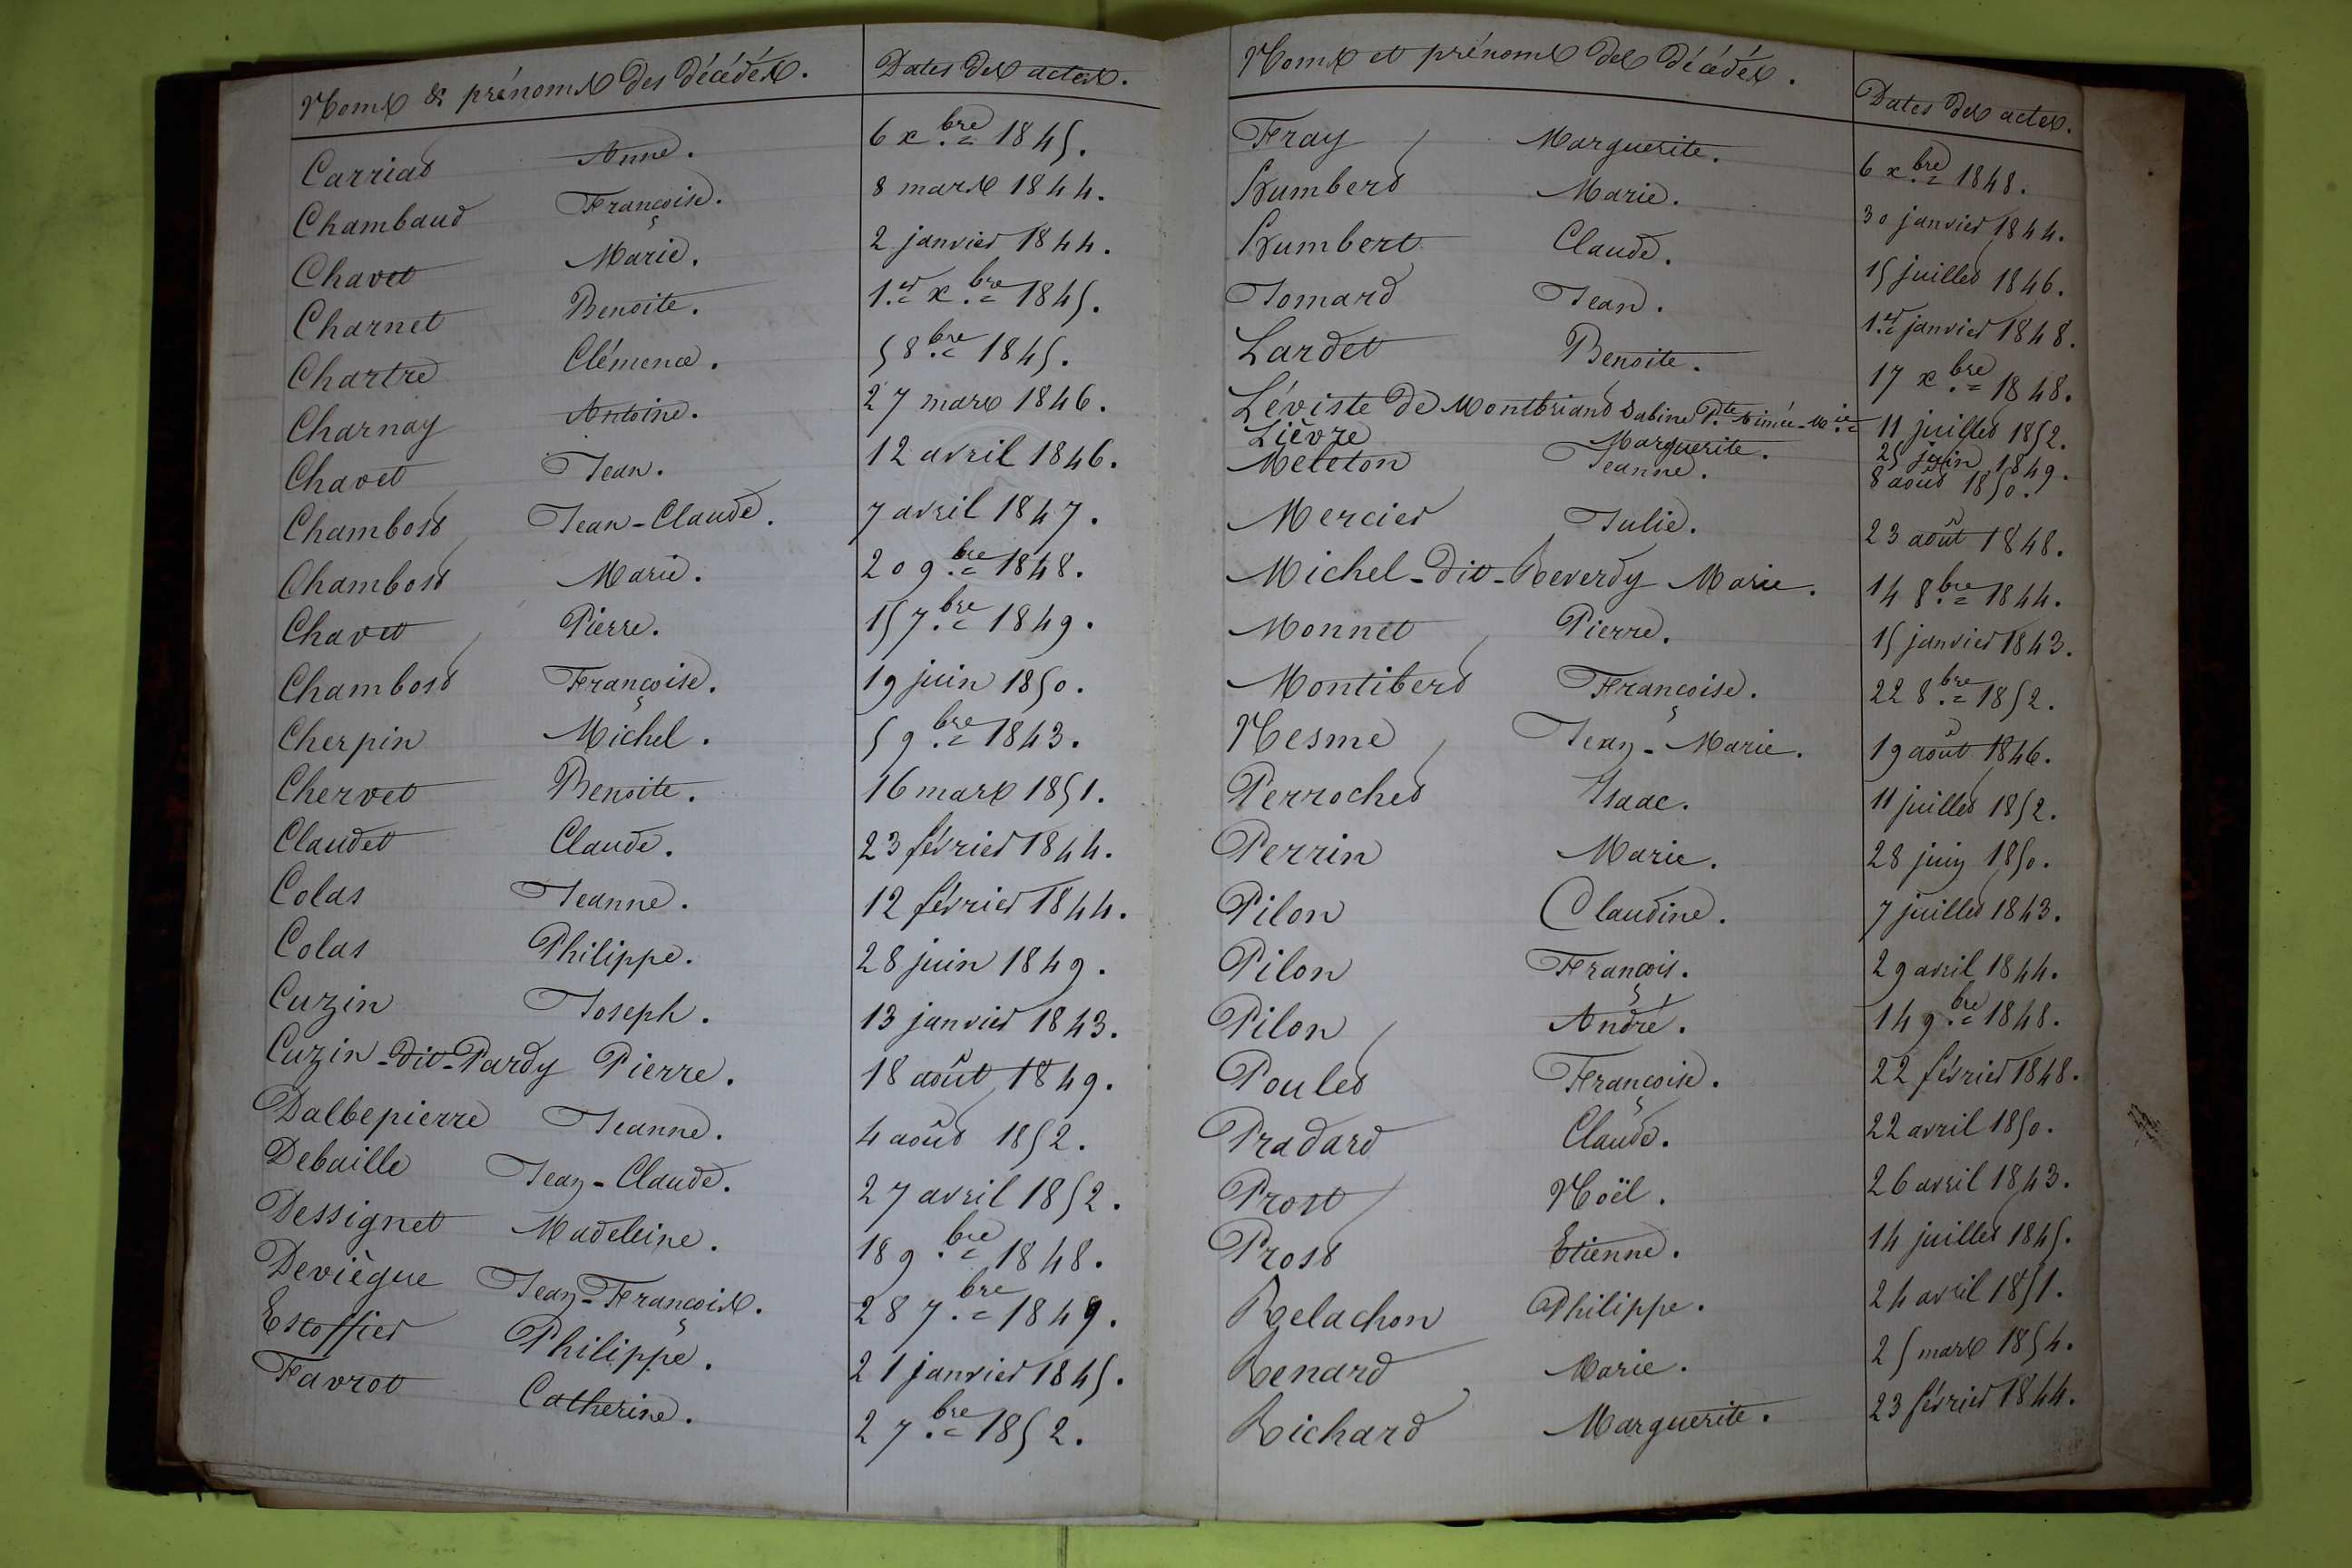 Noms & prénoms des décédés. Dates des actes.
Carriat Anne. 6 x.bre 1845.
Chambaud Françoise. 8 mars 1844.
Chavet Marie. 2 janvier 1844.
Charnet Benoite. 1.er x.bre 1845.
Chartre Clémence. 5 8.bre 1845.
Charnay Antoine. 27 mars 1846.
Chavet Jean. 12 avril 1846.
Chambost Jean-Claude. 7 avril 1847.
Chambost Marie. 20 9.bre 1848.
Chavet Pierre. 15 7.bre 1849.
Chambost Françoise. 19 juin 1850.
Cherpin Michel. 5 9.bre 1843.
Chervet Benoite. 16 mars 1851.
Claudet Claude. 23 février 1844.
Colas Jeanne. 12 février 1844.
Colas Philippe. 28 juin 1849.
Cuzin Joseph. 13 janvier 1843.
Cuzin-dit-Pardy Pierre. 18 août 1849.
Dalbepierre Jeanne. 4 août 1852.
Debaille Jean-Claude. 27 avril 1852.
Dessignet Madeleine. 18 9.bre 1848.
Devièque Jean-François. 28 7.bre 1849.
Estoffier Philippe. 21 janvier 1845.
Favrot Catherine. 2 7.bre 1852.
Noms et prénoms des décédés. Dates des actes.
Fray Marguerite. 6 x.bre 1848.
Humbert Marie. 30 janvier 1844.
Humbert Claude. 15 juillet 1846.
Jomard Jean. 1.er janvier 1848.
Lardet Benoite. 17 x.bre 1848.
Léviste de Montbriand Sabine P.te Aimée-M.ie 11 juillet 1852.
Lièvre Marguerite. 25 juin 1849.
Meleton Jeanne. 8 août 1850.
Mercier Julie. 23 août 1848.
Michel-dit-Reverdy Marie. 14 8.bre 1844.
Monnet Pierre. 15 janvier 1843.
Montibert Françoise. 22 8.bre 1852.
Nesme Jean-Marie. 19 août 1846.
Perrochet Isaac. 11 juillet 1852.
Perrin Marie. 28 juin 1850.
Pilon Claudine. 7 juillet 1843.
Pilon François. 29 avril 1844.
Pilon André. 14 9.bre 1848.
Poulet Françoise. 22 février 1848.
Pradard Claude. 22 avril 1850.
Prost Noël. 26 avril 1843.
Prost Etienne. 14 juillet 1845.
Relachon Philippe. 24 avril 1851.
Renard Marie. 25 mars 1854.
Richard Marguerite. 23 février 1844.